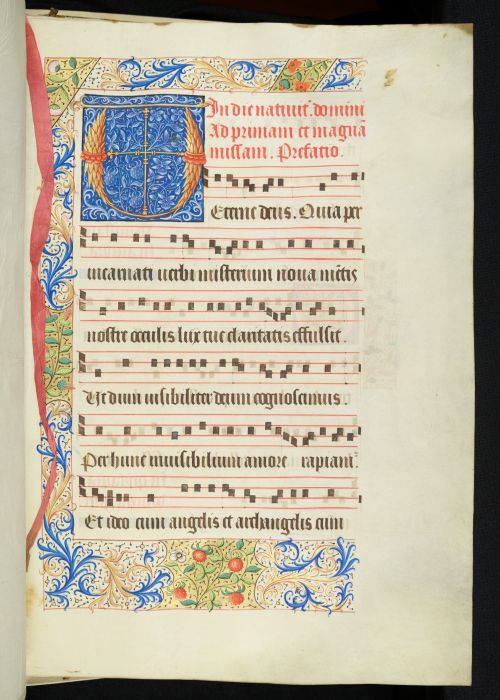 In die natiuit. domini
Ad primam et magnā
missam. Prefatio.
Eterne deus. Quia per
incarnati uerbi misterium noua mētis
nostre occulis lux tue claritatis effulsit.
Ut dum uisibiliter deum cognoscimus.
Per hunc inuisibilium amore rapiam.
Et ideo cum angelis et archangelis cum